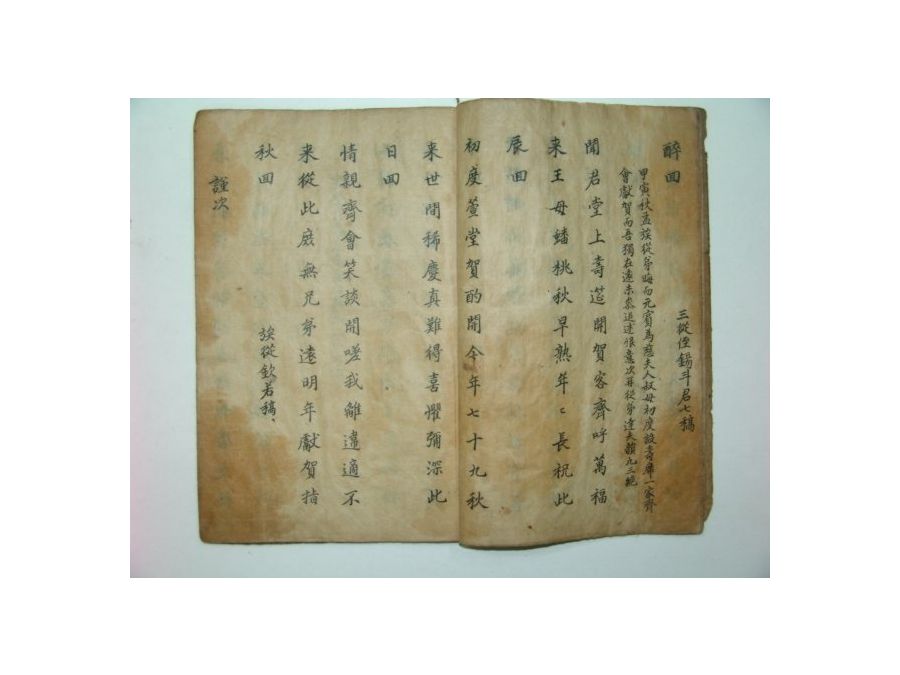 三從侄錫斗君七稿
醉回
甲寅秋孟族從弟晦而元賓為慈夫人叔母初度設壽席一家齊
會獻賀而吾獨在遠未參近述恨意次再從弟達夫韻九三絕
聞君堂上壽筵開賀客齊呼萬福
来王母蟠桃秋早熟年〻長祝此
辰回
初度萱堂賀酌開今年七十九秋
来世間稀慶真難得喜懼彌深此
日回
情親齊會笑談開嗟我離違適不
来從此庭無兄弟遠明年獻賀指
秋回
族從欽若稿、
謹次